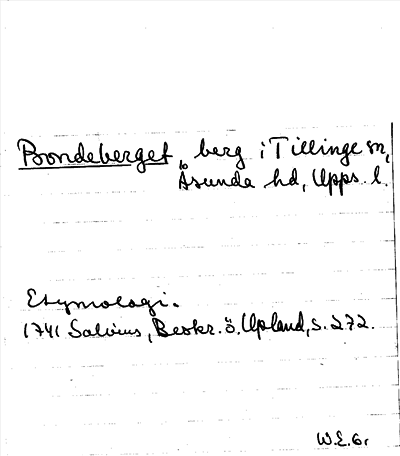 Boondeberget, berg i Tillinge sn,
Åsunda hd, Upps. l.
Etymologi.
1741 Salvius, Beskr. ö. Upland, s. 272.
W.E.